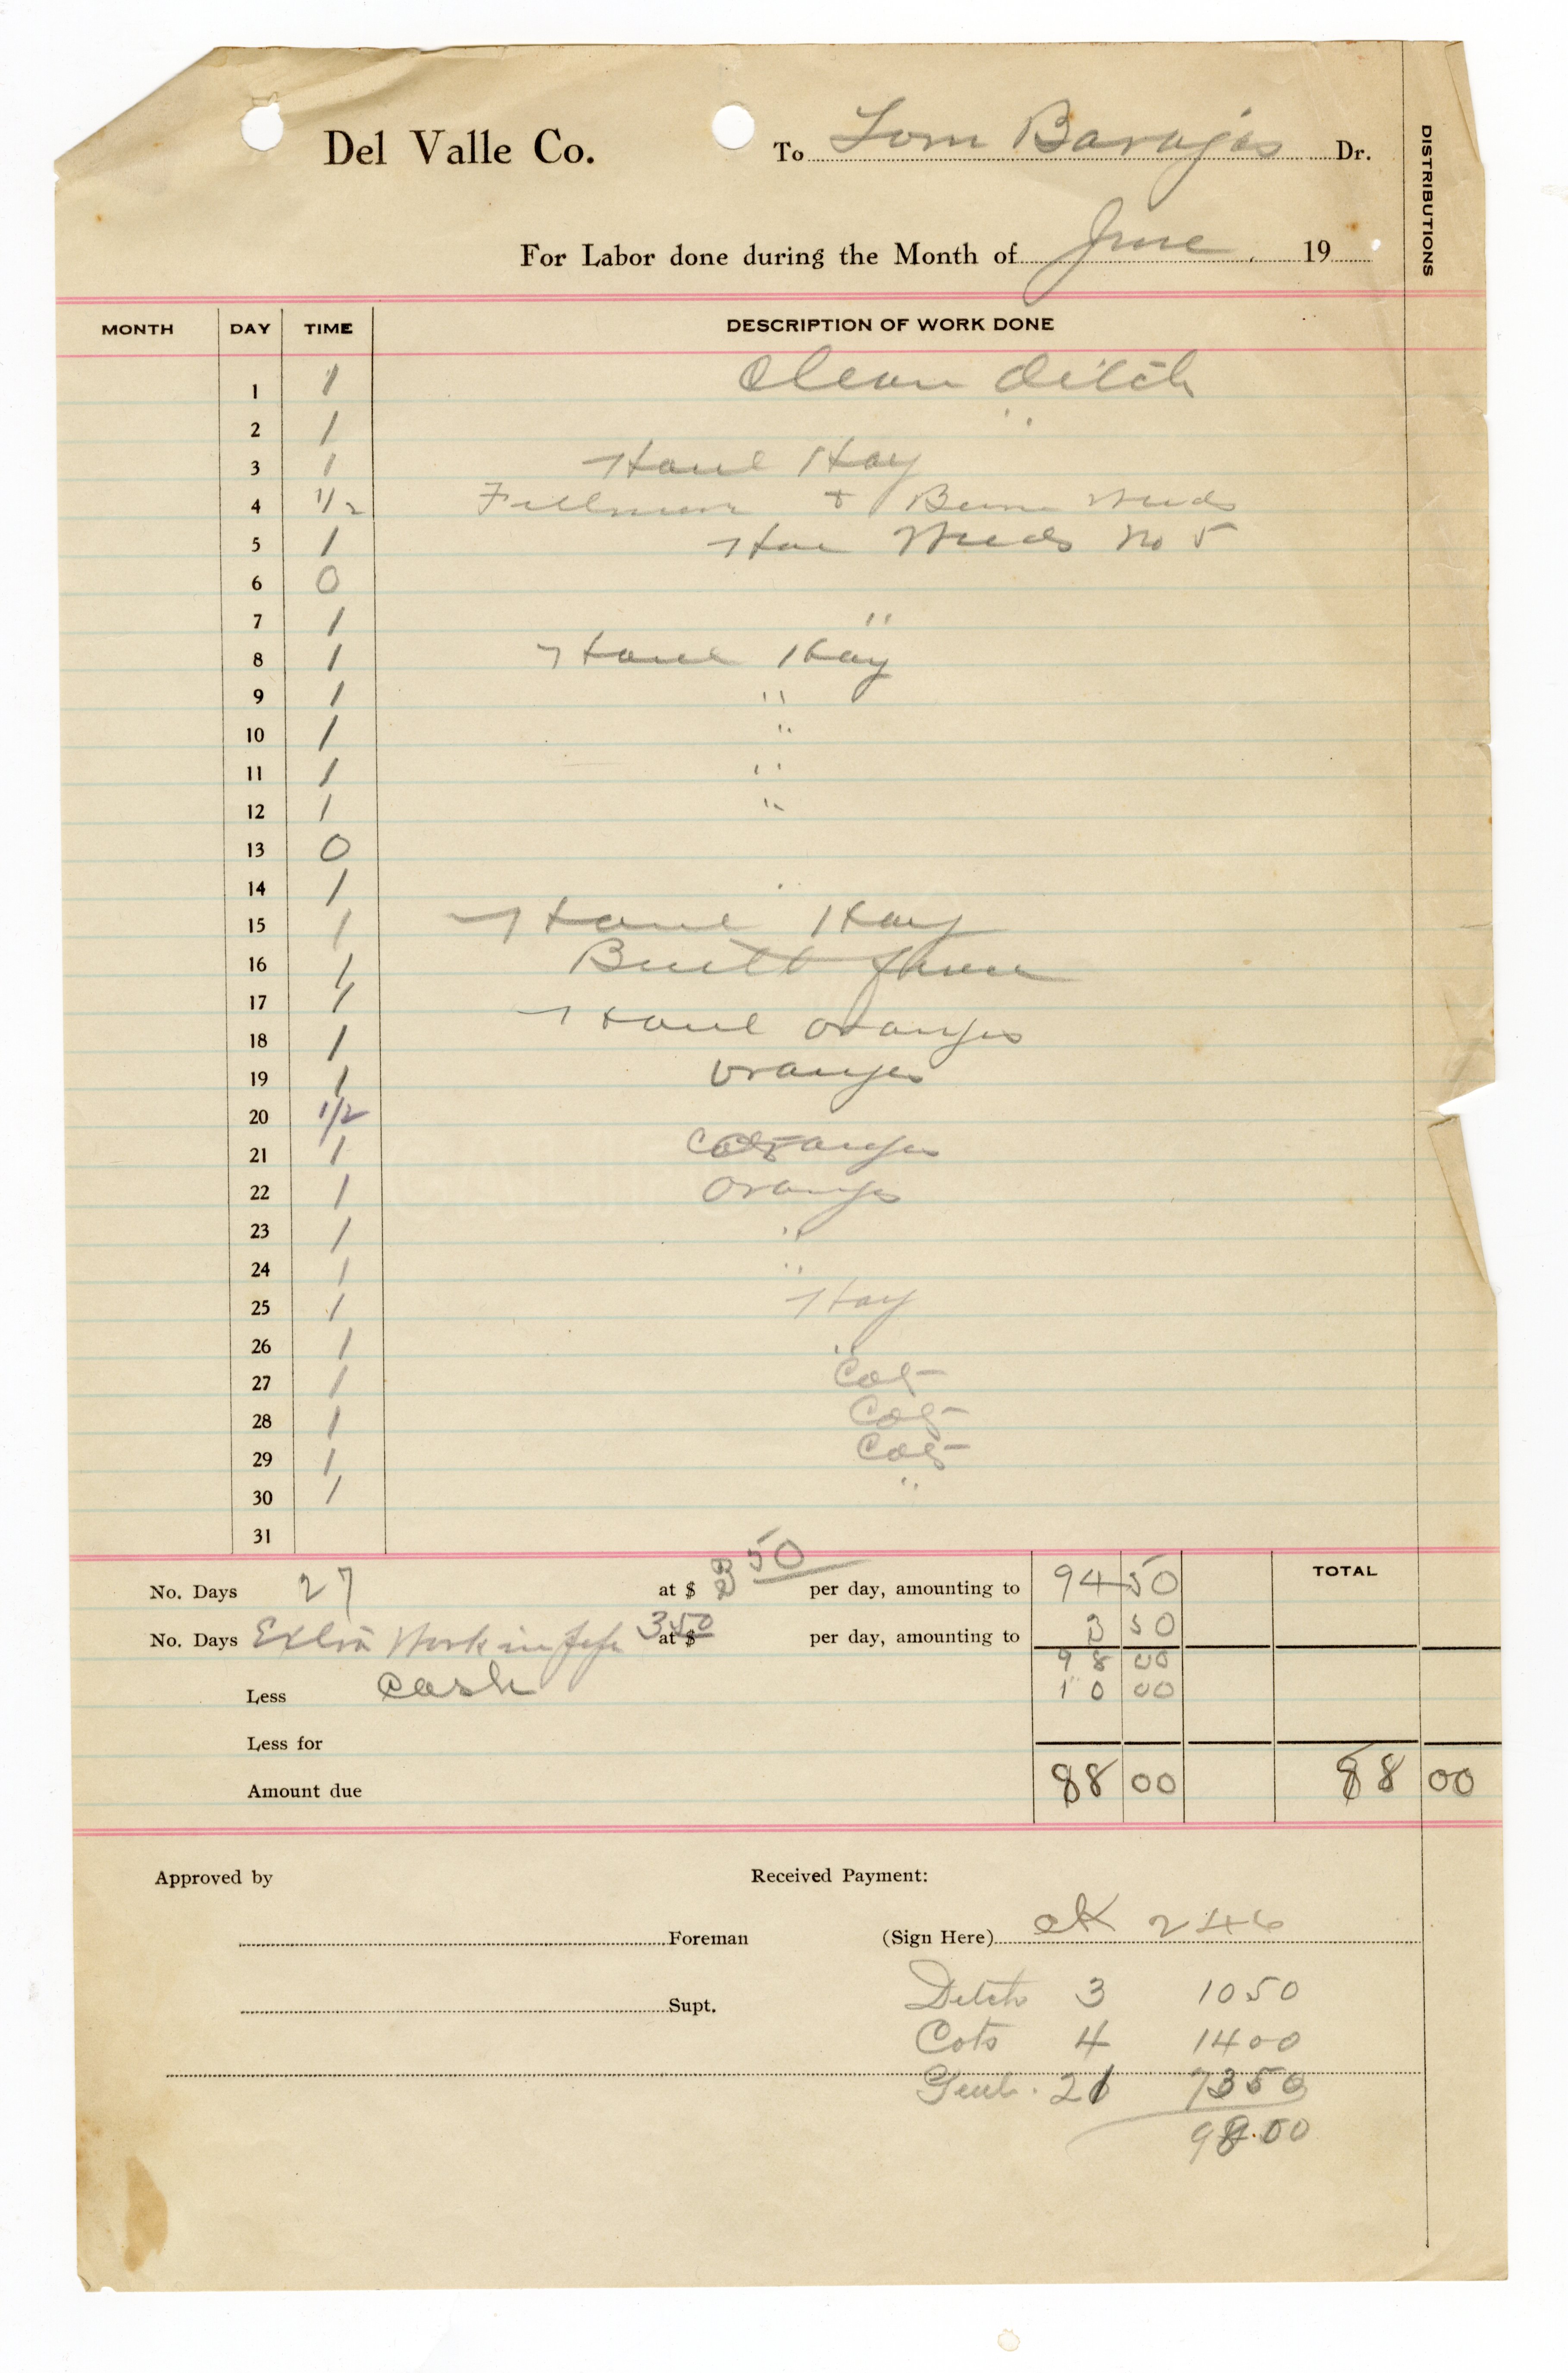 Del Valle Co. To Tom Barajas Dr.
DISTRIBUTIONS
For Labor done during the Month of June 19
MONTH DAY TIME DESCRIPTION OF WORK DONE
1 1 Clean Ditch
2 1 "
3 1 Haul Hay
4 1/2 Fillmore + Burn Weeds
5 1 Hoe Weeds No 5
6 0
7 1 "
8 1 Haul Hay
9 1 "
10 1 "
11 1 "
12 1 "
13 0
14 1
15 1 Haul Hay
16 1 Built
17 1
18 1 Haul oranges
19 1 oranges
20 1/2
21 1 oranges
22 1 oranges
23 1 "
24 1 "
25 1 Hay
26 1 "
27 1 Cots
28 1 Cots
29 1 Cots
30 1 "
31
No. Days 27 at $ 3 50 per day, amounting to 94 50 TOTAL
No. Days Extra Work in 3.50 at $ per day, amounting to 3 50
98 00
Less cash 10 00
Less for
Amount due 88 00 88 00
Approved by Received Payment:
Foreman (Sign Here) ck 246
Supt. Ditch 3 1050
Cots 4 1400
Genl. 21 7350
98.00